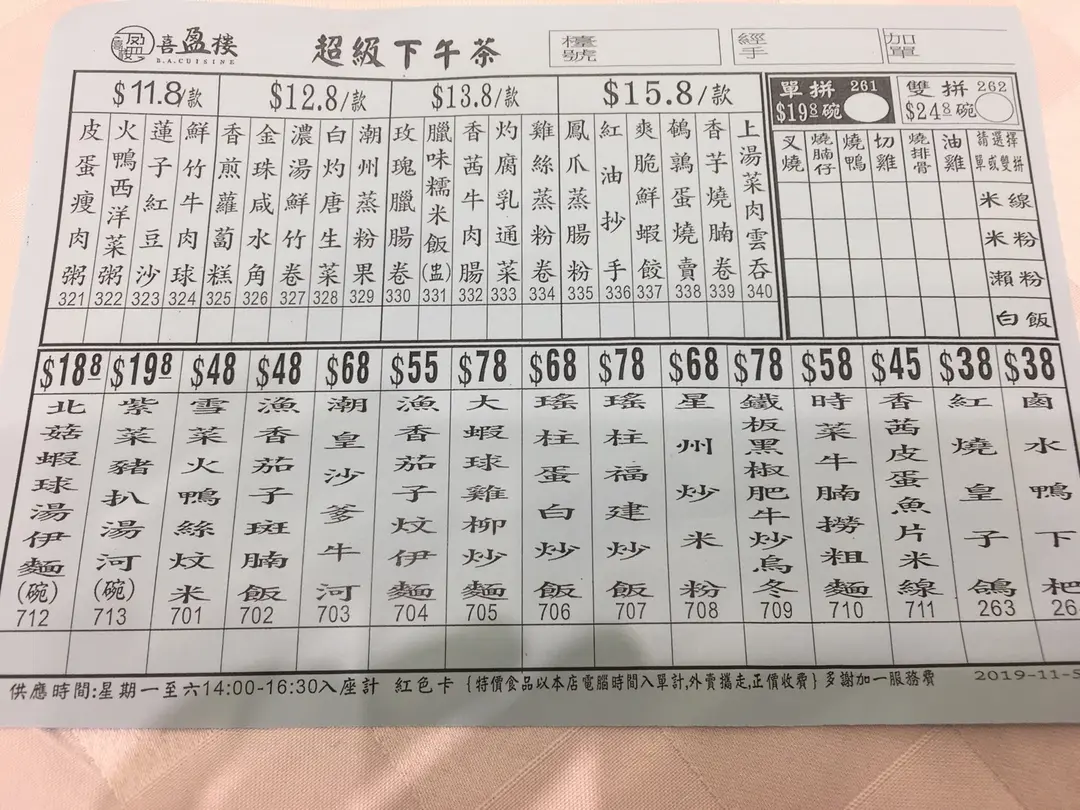 喜盈楼
B.A.CUISINE
超級下午茶
檯號
經手
加單
$11.8/款
$12.8/款
$13.8/款
$15.8/款
皮蛋瘦肉粥 321
火鴨西洋菜粥 322
蓮子紅豆沙 323
鮮竹牛肉球 324
香煎蘿蔔糕 325
金珠咸水角 326
濃湯鮮竹卷 327
白灼唐生菜 328
潮州蒸粉果 329
玫瑰臘腸卷 330
臘味糯米飯(盅) 331
香茜牛肉腸 332
灼腐乳通菜 333
雞絲蒸粉卷 334
鳳爪蒸腸粉 335
紅油抄手 336
爽脆鮮蝦餃 337
鵪鶉蛋燒賣 338
香芋燒腩卷 339
上湯菜肉雲吞 340
單拼 261
$19⁸碗
雙拼 262
$24⁸碗
叉燒
燒腩仔
燒鴨
切雞
燒排骨
油雞
請選擇單或雙拼
米線
米粉
瀨粉
白飯
$18⁸ 北菇蝦球湯伊麵(碗) 712
$19⁸ 紫菜豬扒湯河(碗) 713
$48 雪菜火鴨絲炆米 701
$48 漁香茄子斑腩飯 702
$68 潮皇沙爹牛河 703
$55 漁香茄子炆伊麵 704
$78 大蝦球雞柳炒麵 705
$68 瑤柱蛋白炒飯 706
$78 瑤柱福建炒飯 707
$68 星州炒米粉 708
$78 鐵板黑椒肥牛炒烏冬 709
$58 時菜牛腩撈粗麵 710
$45 香茜皮蛋魚片米線 711
$38 紅燒皇子鴿 263
$38 鹵水鴨下杷 26
供應時間:星期一至六14:00-16:30入座計 紅色卡 {特價食品以本店電腦時間入單計,外賣攜走,正價收費} 多謝加一服務費
2019-11-5